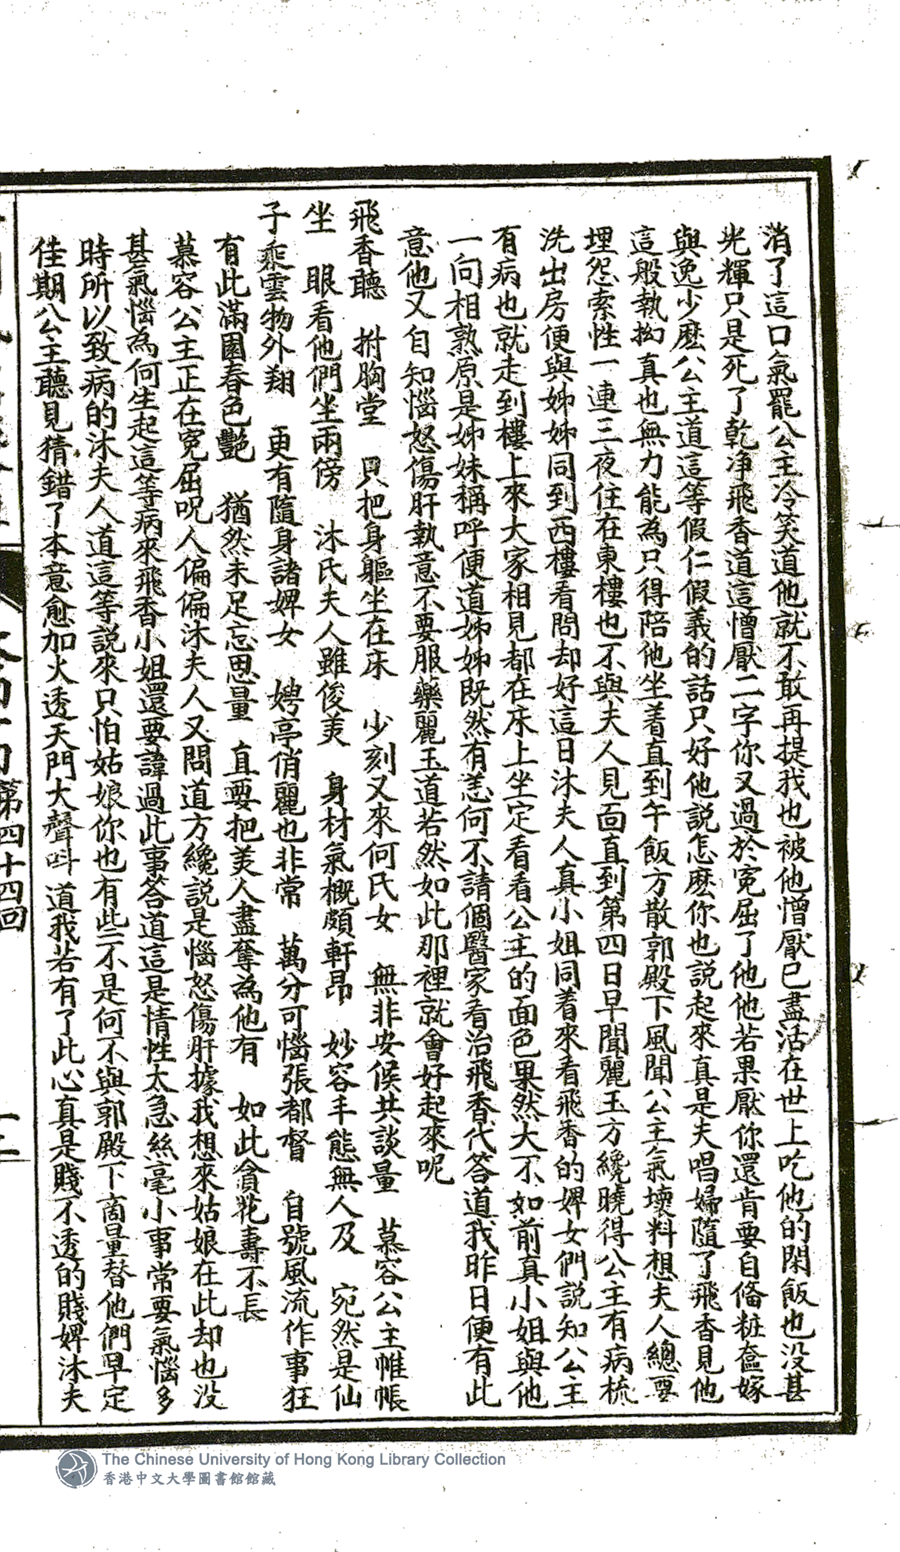 消了這口氣罷公主冷笑道他就不敢再提我也被他憎厭已盡活在世上吃他的閑飯也没甚
光輝只是死了乾净飛香道這憎厭二字你又過於寃屈了他他若果厭你還肯要自備粧奩嫁
與逸少麽公主道這等假仁假義的話只好他説怎麽你也説起來真是夫唱婦隨了飛香見他
這般執拗真也無力能為只得陪他坐着直到午飯方散郭殿下風聞公主氣壞料想夫人總要
埋怨索性一連三夜住在東樓也不與夫人見面直到第四日早聞麗玉方纔曉得公主有病梳
洗出房便與姊姊同到西樓看問却好這日沐夫人真小姐同着來看飛香的婢女們説知公主
有病也就走到樓上來大家相見都在床上坐定看看公主的面色果然大不如前真小姐與他
一向相熟原是姊妹稱呼便道姊姊既然有恙何不請個醫家看治飛香代答道我昨日便有此
意他又自知惱怒傷肝執意不要服藥麗玉道若然如此那裡就會好起來呢
飛香聽 拊胸堂 只把身軀坐在床 少刻又來何氏女 無非安候共談量 慕容公主帷帳
坐 眼看他們坐兩傍 沐氏夫人雖俊美 身材氣概頗軒昂 妙容丰態無人及 宛然是仙
子乘雲物外翔 更有隨身諸婢女 娉亭俏麗也非常 萬分可惱張都督 自號風流作事狂
有此滿園春色艷 猶然未足忘思量 直要把美人盡奪為他有 如此貪花壽不長
慕容公主正在寃屈呪人偏偏沐夫人又問道方纔説是惱怒傷肝據我想來姑娘在此却也没
甚氣惱為何生起這等病來飛香小姐還要諱過此事答道這是情性太急絲毫小事常要氣惱多
時所以致病的沐夫人道這等説來只怕姑娘你也有些不是何不與郭殿下商量替他們早定
佳期公主聽見猜錯了本意愈加火透天門大聲呌道我若有了此心真是賤不透的賤婢沐夫
第四十四回
The Chinese University of Hong Kong Library Collection
香港中文大學圖書館館藏